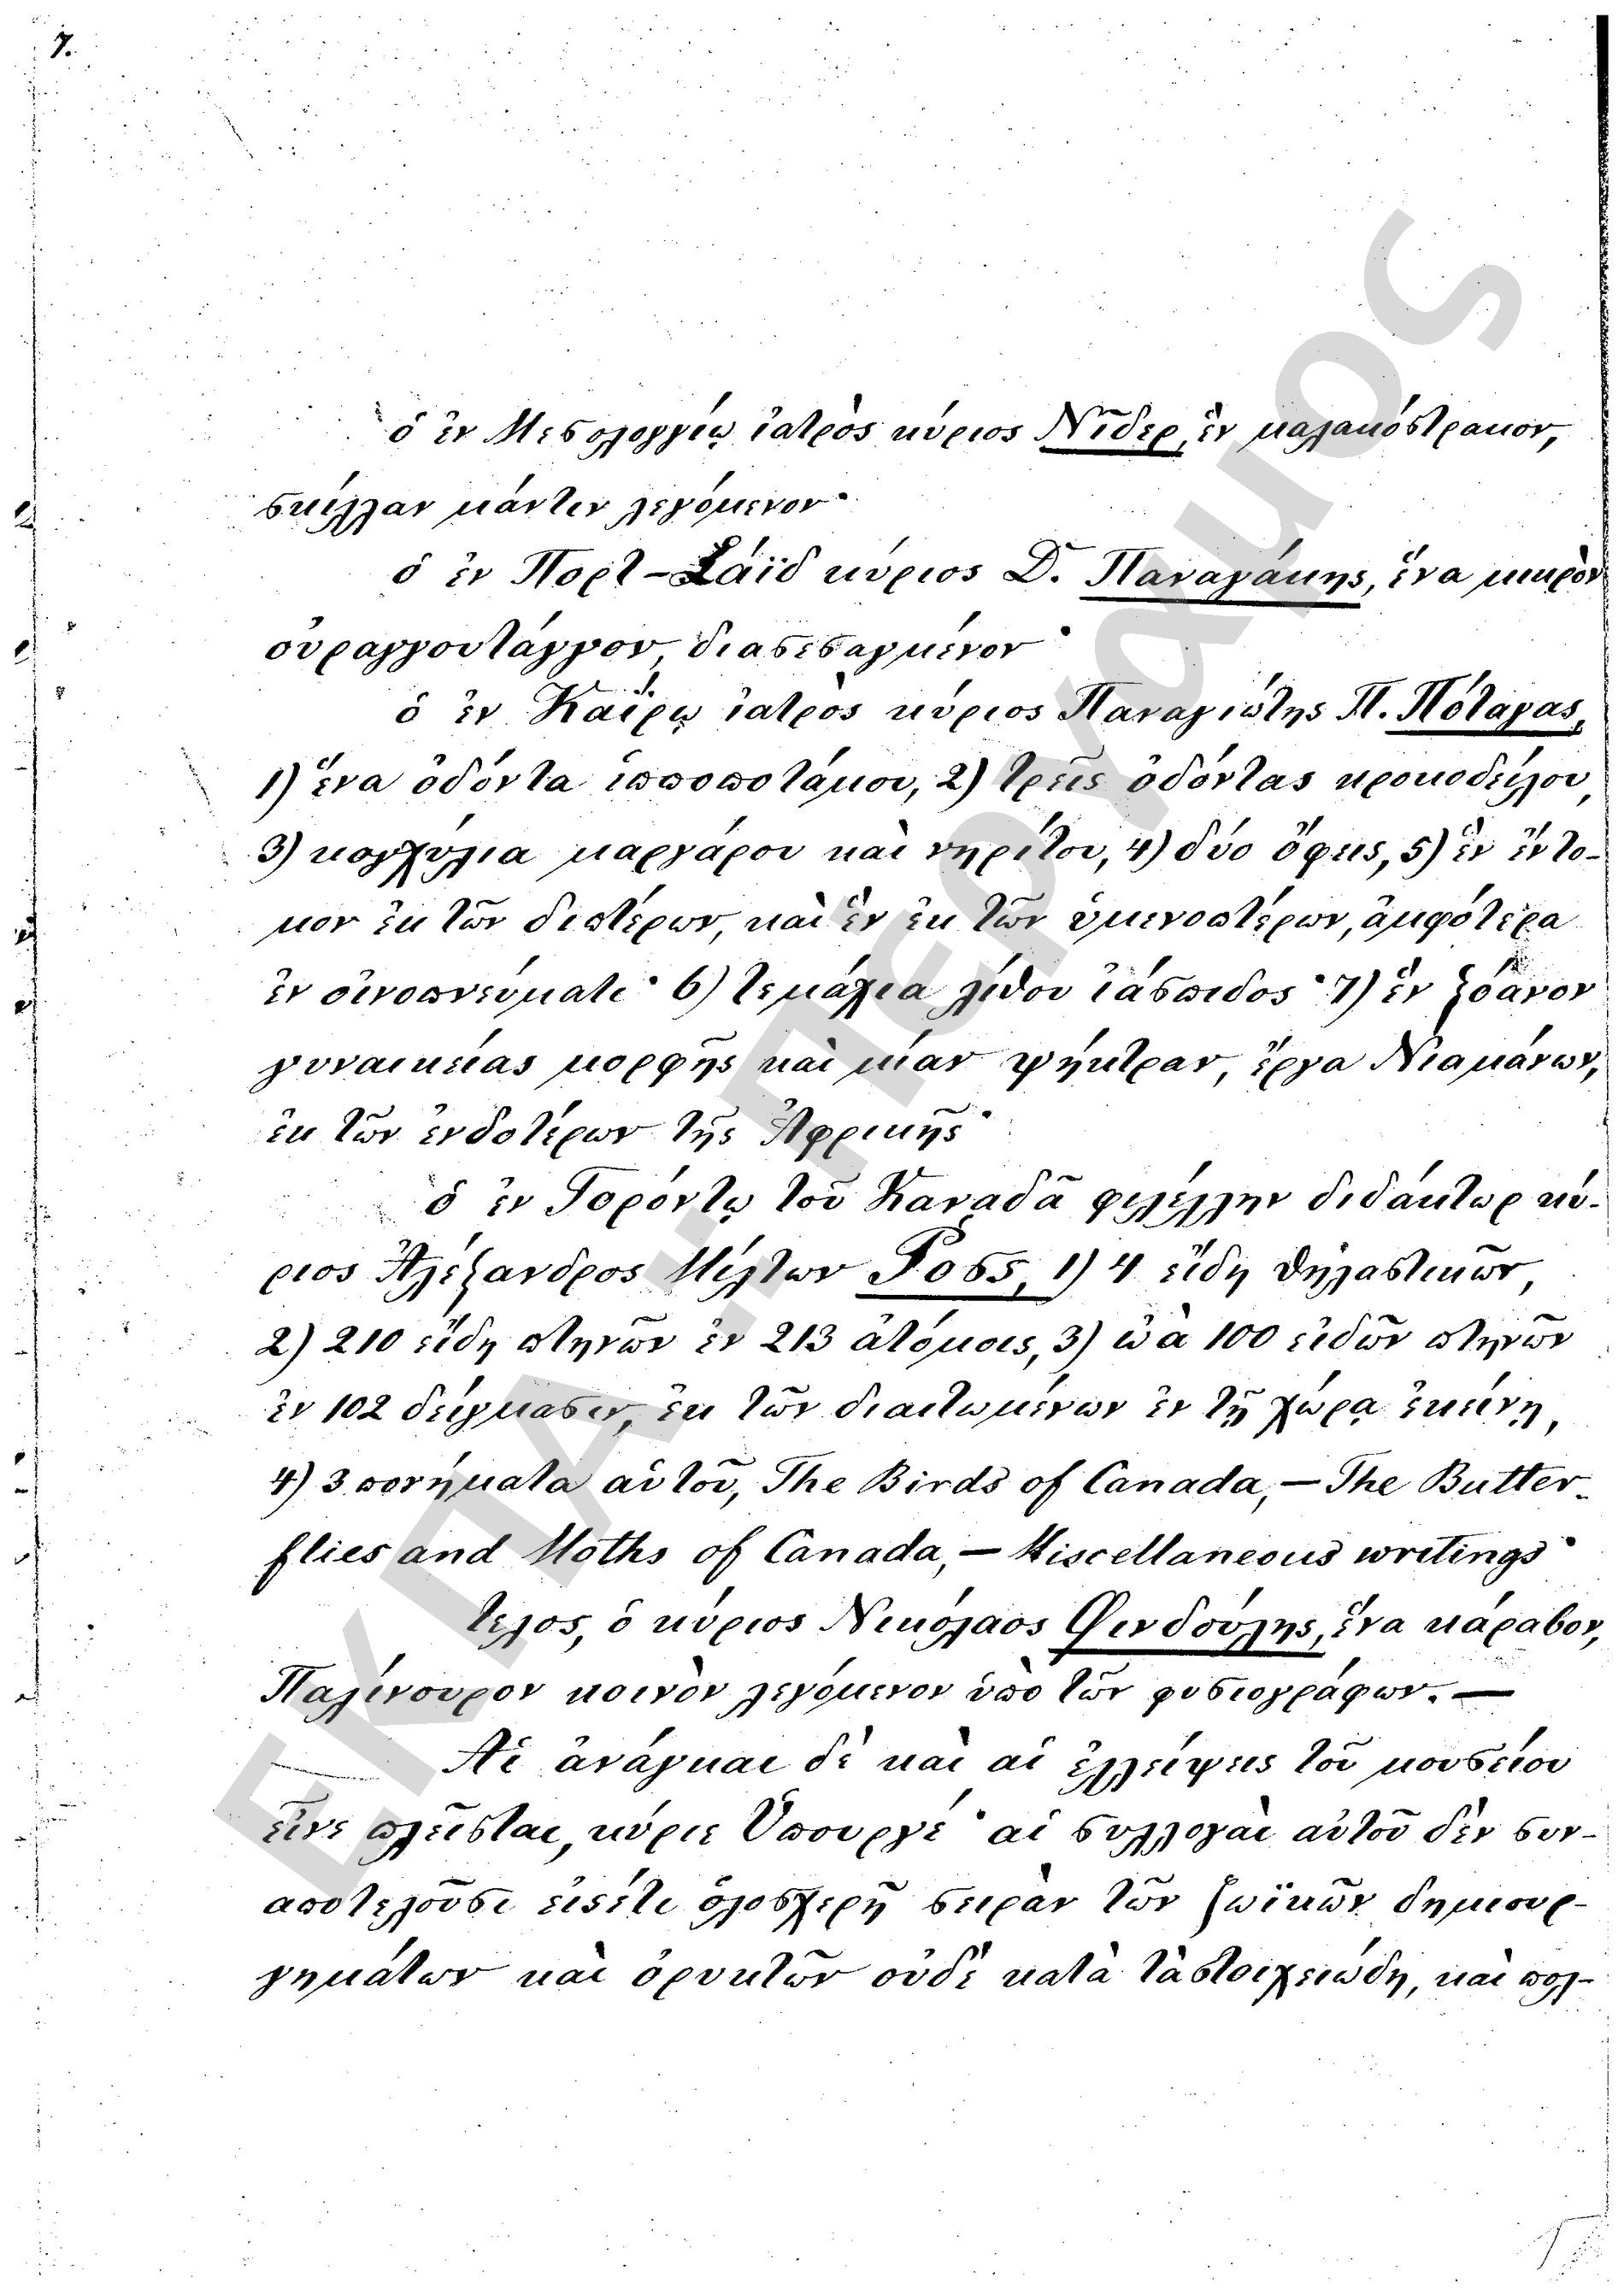 7.
ὁ ἐν Μεσολογγίῳ ἰατρὸς κύριος Νῖδερ, ἓν μαλακόστρακον,
σκίλλαν μάντιν λεγόμενον·
ὁ ἐν Πορτ-Σάϊδ κύριος D. Παναγάκης, ἕνα μικρὸν
οὐραγγουτάγγον διασεσαγμένον·
ὁ ἐν Καΐρῳ ἰατρὸς κύριος Παναγιώτης Π. Πόταγας,
1) ἕνα ὀδόντα ἱπποποτάμου, 2) τρεῖς ὀδόντας κροκοδείλου,
3) κογχύλια μαργάρου καὶ νηρίτου, 4) δύο ὄφεις, 5) ἓν ἔντο-
μον ἐκ τῶν διπτέρων, καὶ ἓν ἐκ τῶν ὑμενοπτέρων, ἀμφότερα
ἐν οἰνοπνεύματι· 6) τεμάχια λίθου ἰάσπιδος· 7) ἓν ξόανον
γυναικείας μορφῆς καὶ μίαν ψήκτραν, ἔργα Νιαμάνων,
ἐκ τῶν ἐνδοτέρων τῆς Ἀφρικῆς·
ὁ ἐν Τορόντῳ τοῦ Καναδᾶ φιλέλλην διδάκτωρ κύ-
ριος Ἀλέξανδρος Μίλτων Ῥόσς, 1) 4 εἴδη θηλαστικῶν,
2) 210 εἴδη πτηνῶν ἐν 213 ἀτόμοις, 3) ὠὰ 100 εἰδῶν πτηνῶν
ἐν 102 δείγμασιν, ἐκ τῶν διαιτωμένων ἐν τῇ χώρᾳ ἐκείνῃ,
4) 3 πονήματα αὐτοῦ, The Birds of Canada, — The Butter-
flies and Moths of Canada, — Miscellaneous writings·
τέλος, ὁ κύριος Νικόλαος Φινδούλης, ἕνα κάραβον,
Παλίνουρον κοινὸν λεγόμενον ὑπὸ τῶν φυσιογράφων. —
Αἱ ἀνάγκαι δὲ καὶ αἱ ἐλλείψεις τοῦ μουσείου
εἶνε πλεῖσται, κύριε Ὑπουργέ· αἱ συλλογαὶ αὐτοῦ δὲν συν-
αποτελοῦσι εἰσέτι ὁλοσχερῆ σειρὰν τῶν ζωϊκῶν δημιουρ-
γημάτων καὶ ὀρυκτῶν οὐδὲ κατὰ τὰ στοιχειώδη, καὶ πολ-
ΕΚΠΑ - Πέργαμος